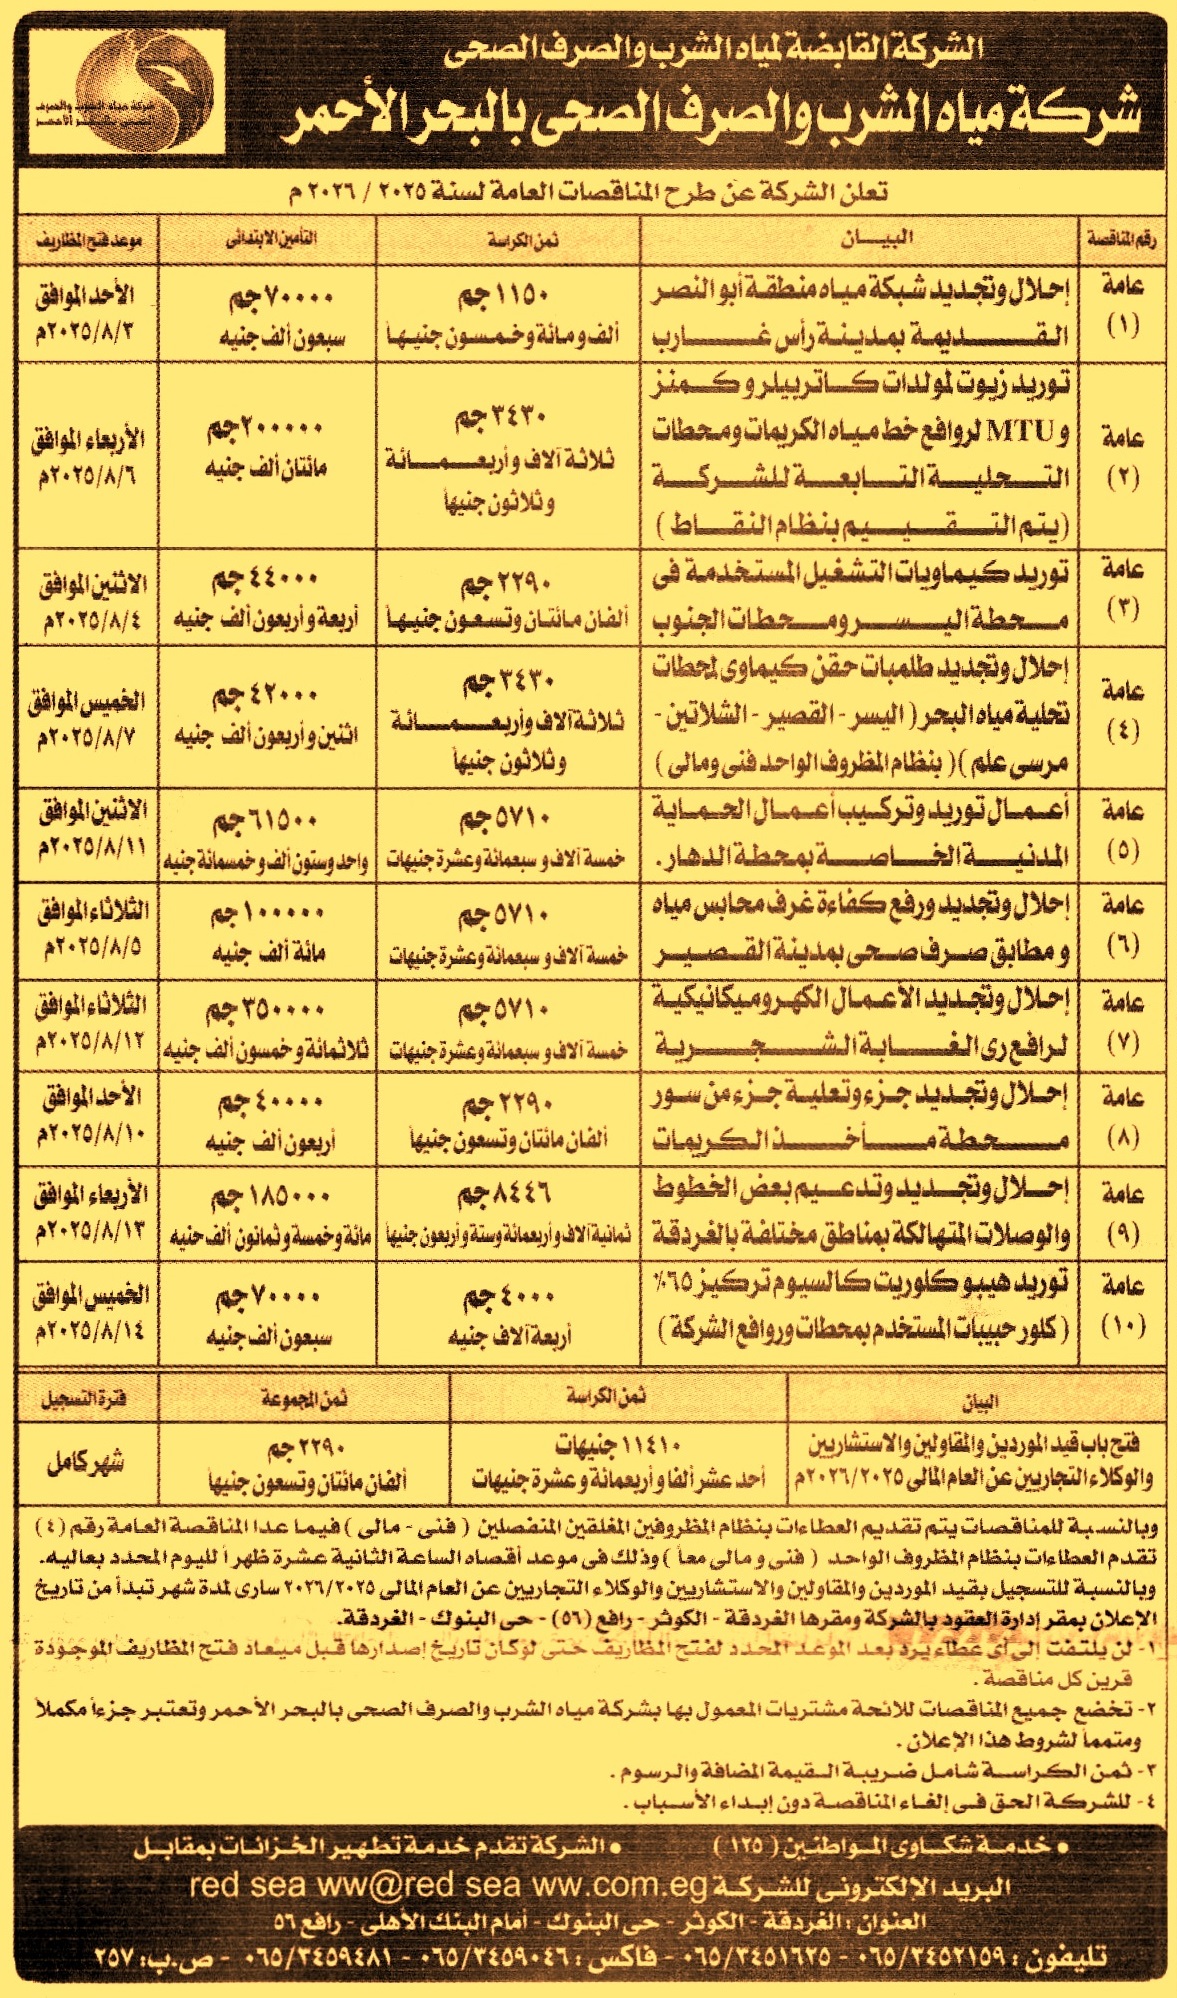 الشركة القابضة لمياه الشرب والصرف الصحى
شركة مياه الشرب والصرف الصحى بالبحر الأحمر
شركة مياه الشرب والصرف
الصحى بالبحر الأحمر
تعلن الشركة عن طرح المناقصات العامة لسنة ٢٠٢٥ / ٢٠٢٦ م
رقم المناقصة
البيـــان
ثمن الكراسة
التأمين الابتدائى
موعد فتح المظاريف
عامة
(١)
إحلال وتجديد شبكة مياه منطقة أبو النصر
القديمة بمدينة رأس غارب
١١٥٠ جم
ألف ومائة وخمسون جنيهاً
٧٠٠٠٠ جم
سبعون ألف جنيه
الأحد الموافق
٢٠٢٥/٨/٣م
عامة
(٢)
توريد زيوت لمولدات كاتربيلر وكمنز
و MTU لروافع خط مياه الكريمات ومحطات
التحلية التابعة للشركة
(يتم التقييم بنظام النقاط)
٣٤٣٠ جم
ثلاثة آلاف وأربعمائة
وثلاثون جنيهاً
٢٠٠٠٠٠ جم
مائتان ألف جنيه
الأربعاء الموافق
٢٠٢٥/٨/٦م
عامة
(٣)
توريد كيماويات التشغيل المستخدمة فى
محطة اليسر ومحطات الجنوب
٢٢٩٠ جم
ألفان مائتان وتسعون جنيهاً
٤٤٠٠٠ جم
أربعة وأربعون ألف جنيه
الاثنين الموافق
٢٠٢٥/٨/٤م
عامة
(٤)
إحلال وتجديد طلمبات حقن كيماوى لمحطات
تحلية مياه البحر ( اليسر - القصير - الشلاتين -
مرسى علم ) ( بنظام المظروف الواحد فنى ومالى )
٣٤٣٠ جم
ثلاثة آلاف وأربعمائة
وثلاثون جنيهاً
٤٢٠٠٠ جم
اثنين وأربعون ألف جنيه
الخميس الموافق
٢٠٢٥/٨/٧م
عامة
(٥)
أعمال توريد وتركيب أعمال الحماية
المدنية الخاصة بمحطة الدهار.
٥٧١٠ جم
خمسة آلاف وسبعمائة وعشرة جنيهات
٦١٥٠٠ جم
واحد وستون ألف وخمسمائة جنيه
الاثنين الموافق
٢٠٢٥/٨/١١م
عامة
(٦)
إحلال وتجديد ورفع كفاءة غرف محابس مياه
ومطابق صرف صحى بمدينة القصير
٥٧١٠ جم
خمسة آلاف وسبعمائة وعشرة جنيهات
١٠٠٠٠٠ جم
مائة ألف جنيه
الثلاثاء الموافق
٢٠٢٥/٨/٥م
عامة
(٧)
إحلال وتجديد الأعمال الكهروميكانيكية
لرافع رى الغابة الشجرية
٥٧١٠ جم
خمسة آلاف وسبعمائة وعشرة جنيهات
٣٥٠٠٠٠ جم
ثلاثمائة وخمسون ألف جنيه
الثلاثاء الموافق
٢٠٢٥/٨/١٢م
عامة
(٨)
إحلال وتجديد جزء وتعلية جزء من سور
محطة مأخذ الكريمات
٢٢٩٠ جم
ألفان مائتان وتسعون جنيهاً
٤٠٠٠٠ جم
أربعون ألف جنيه
الأحد الموافق
٢٠٢٥/٨/١٠م
عامة
(٩)
إحلال وتجديد وتدعيم بعض الخطوط
والوصلات المتهالكة بمناطق مختلفة بالغردقة
٨٤٤٦ جم
ثمانية آلاف وأربعمائة وستة وأربعون جنيهاً
١٨٥٠٠٠ جم
مائة وخمسة وثمانون ألف جنيه
الأربعاء الموافق
٢٠٢٥/٨/١٣م
عامة
(١٠)
توريد هيبو كلوريت كالسيوم تركيز ٦٥٪
( كلور حبيبات المستخدم بمحطات وروافع الشركة )
٤٠٠٠ جم
أربعة آلاف جنيه
٧٠٠٠٠ جم
سبعون ألف جنيه
الخميس الموافق
٢٠٢٥/٨/١٤م
البيان
ثمن الكراسة
ثمن المجموعة
فترة التسجيل
فتح باب قيد الموردين والمقاولين والاستشاريين
والوكلاء التجاريين عن العام المالى ٢٠٢٦/٢٠٢٥م
١١٤١٠ جنيهات
أحد عشر ألفا وأربعمائة وعشرة جنيهات
٢٢٩٠ جم
ألفان مائتان وتسعون جنيهاً
شهر كامل
وبالنسبة للمناقصات يتم تقديم العطاءات بنظام المظروفين المغلقين المنفصلين ( فنى - مالى ) فيما عدا المناقصة العامة رقم (٤)
تقدم العطاءات بنظام المظروف الواحد ( فنى ومالى معاً ) وذلك فى موعد أقصاه الساعة الثانية عشرة ظهراً لليوم المحدد بعاليه.
وبالنسبة للتسجيل بقيد الموردين والمقاولين والاستشاريين والوكلاء التجاريين عن العام المالى ٢٠٢٦/٢٠٢٥ سارى لمدة شهر تبدأ من تاريخ
الإعلان بمقر إدارة العقود بالشركة ومقرها الغردقة - الكوثر - رافع (٥٦) - حى البنوك - الغردقة.
١- لن يلتفت إلى أى عطاء يرد بعد الموعد المحدد لفتح المظاريف حتى لو كان تاريخ إصدارها قبل ميعاد فتح المظاريف الموجودة
قرين كل مناقصة .
٢- تخضع جميع المناقصات للائحة مشتريات المعمول بها بشركة مياه الشرب والصرف الصحى بالبحر الأحمر وتعتبر جزءاً مكملاً
ومتمماً لشروط هذا الإعلان .
٣- ثمن الكراسة شامل ضريبة القيمة المضافة والرسوم .
٤- للشركة الحق فى إلغاء المناقصة دون إبداء الأسباب .
• خدمة شكاوى المواطنين ( ١٢٥ ) • الشركة تقدم خدمة تطهير الخزانات بمقابل
البريد الالكترونى للشركة red sea ww@red sea ww.com.eg
العنوان : الغردقة - الكوثر - حى البنوك - أمام البنك الأهلى - رافع ٥٦
تليفون : ٠٦٥/٣٤٥٢١٥٩ - ٠٦٥/٣٤٥١٦٢٥ - فاكس : ٠٦٥/٣٤٥٩٠٤٦ - ٠٦٥/٣٤٥٩٤٨١ - ص.ب: ٢٥٧